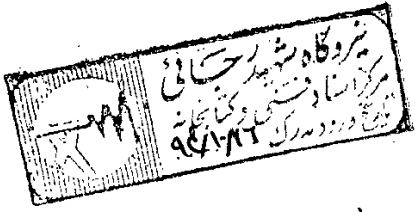 نیروگاه شهید رجائی
مرکز اسناد فنی و کتابخانه
تاریخ ورود مدرک